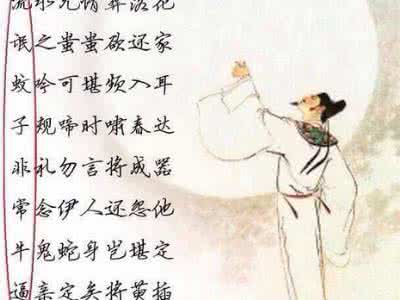 流水无情葬落花
氓之蚩蚩欲还家
蚊吟可堪频入耳
子规啼时啸春达
非礼勿言将成器
常念伊人还怨他
牛鬼蛇身岂堪定
逼亲定矣将黄插